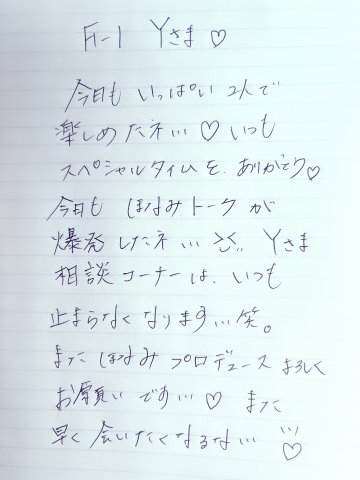 F1-1 Yさま♡
今日も いっぱい 2人で
楽しめたネ… ♡ いつも
スペシャルタイムを、ありがとう♡
今日も ほなみトークが
爆発したネ… Yさま
相談コーナーは、いつも
止まらなくなります…笑。
また ほなみプロデュース よろしく
お願いです… ♡ また
早く会いたくなるな… ♡